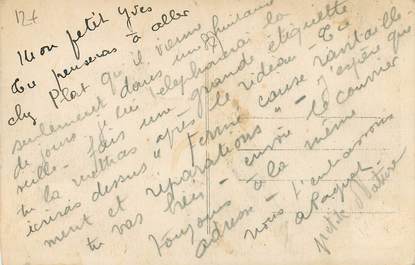 127
Mon petit Yves
Tu penseras à aller
chez Plat qu'il vienne
seulement dans une huitaine
de jours, je lui téléphonerai la
veille - fais une grande étiquette
tu la mettras après le rideau - Tu
écriras dessus "fermé cause
ment et réparations" - J'espère que
tu vas bien - envoie le courrier
toujours à la même
adresse -
nous t'embrassons